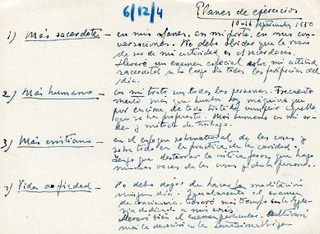 6/12/4
Planes de ejercicios
10-16 septiembre 1950
1) Más sacerdote - en mis afanes, en mi porte, en mis con-
versaciones. No debo olvidar que la razón
de ser de mi entidad es el sacerdocio.
Llevaré un examen especial sobre mi actitud
sacerdotal a lo largo de todas las peripecias del
día.
2) Más humano - en mi trato con todas las personas. Frecuente
mente soy un hombre máquina que
por encima de todo cumplir aquello
que se ha propuesto. Más humano en mi or-
den y método de trabajo.
3) Más cristiano - en el enfoque sobrenatural de las cosas y
sobre todo en la práctica de la caridad.
Tengo que desterrar la crítica que hago
muchas veces de las cosas y de las personas.
Vida de piedad - No debo dejar de hacer la meditación
ningún día. Igualmente el examen
de conciencia. más tiempo en la
dedicado a mi
Llevaré bien el examen particular.
más la devoción a la